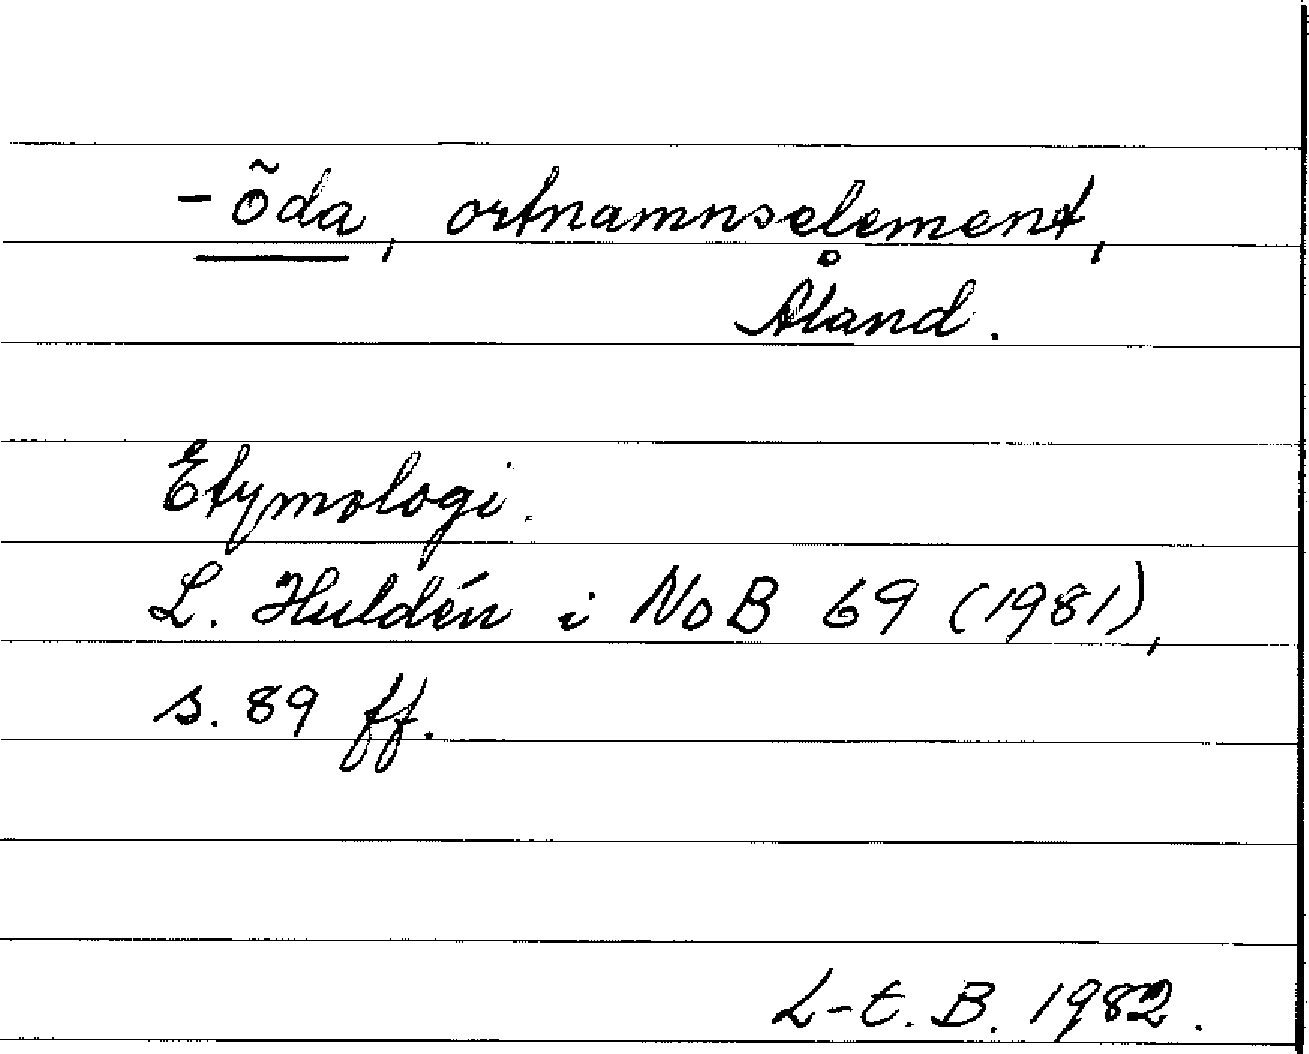 -öda, ortnamnselement,
Åland.
Etymologi.
L. Huldén i NoB 69 (1981),
s. 89 ff.
L-t. B. 1982.